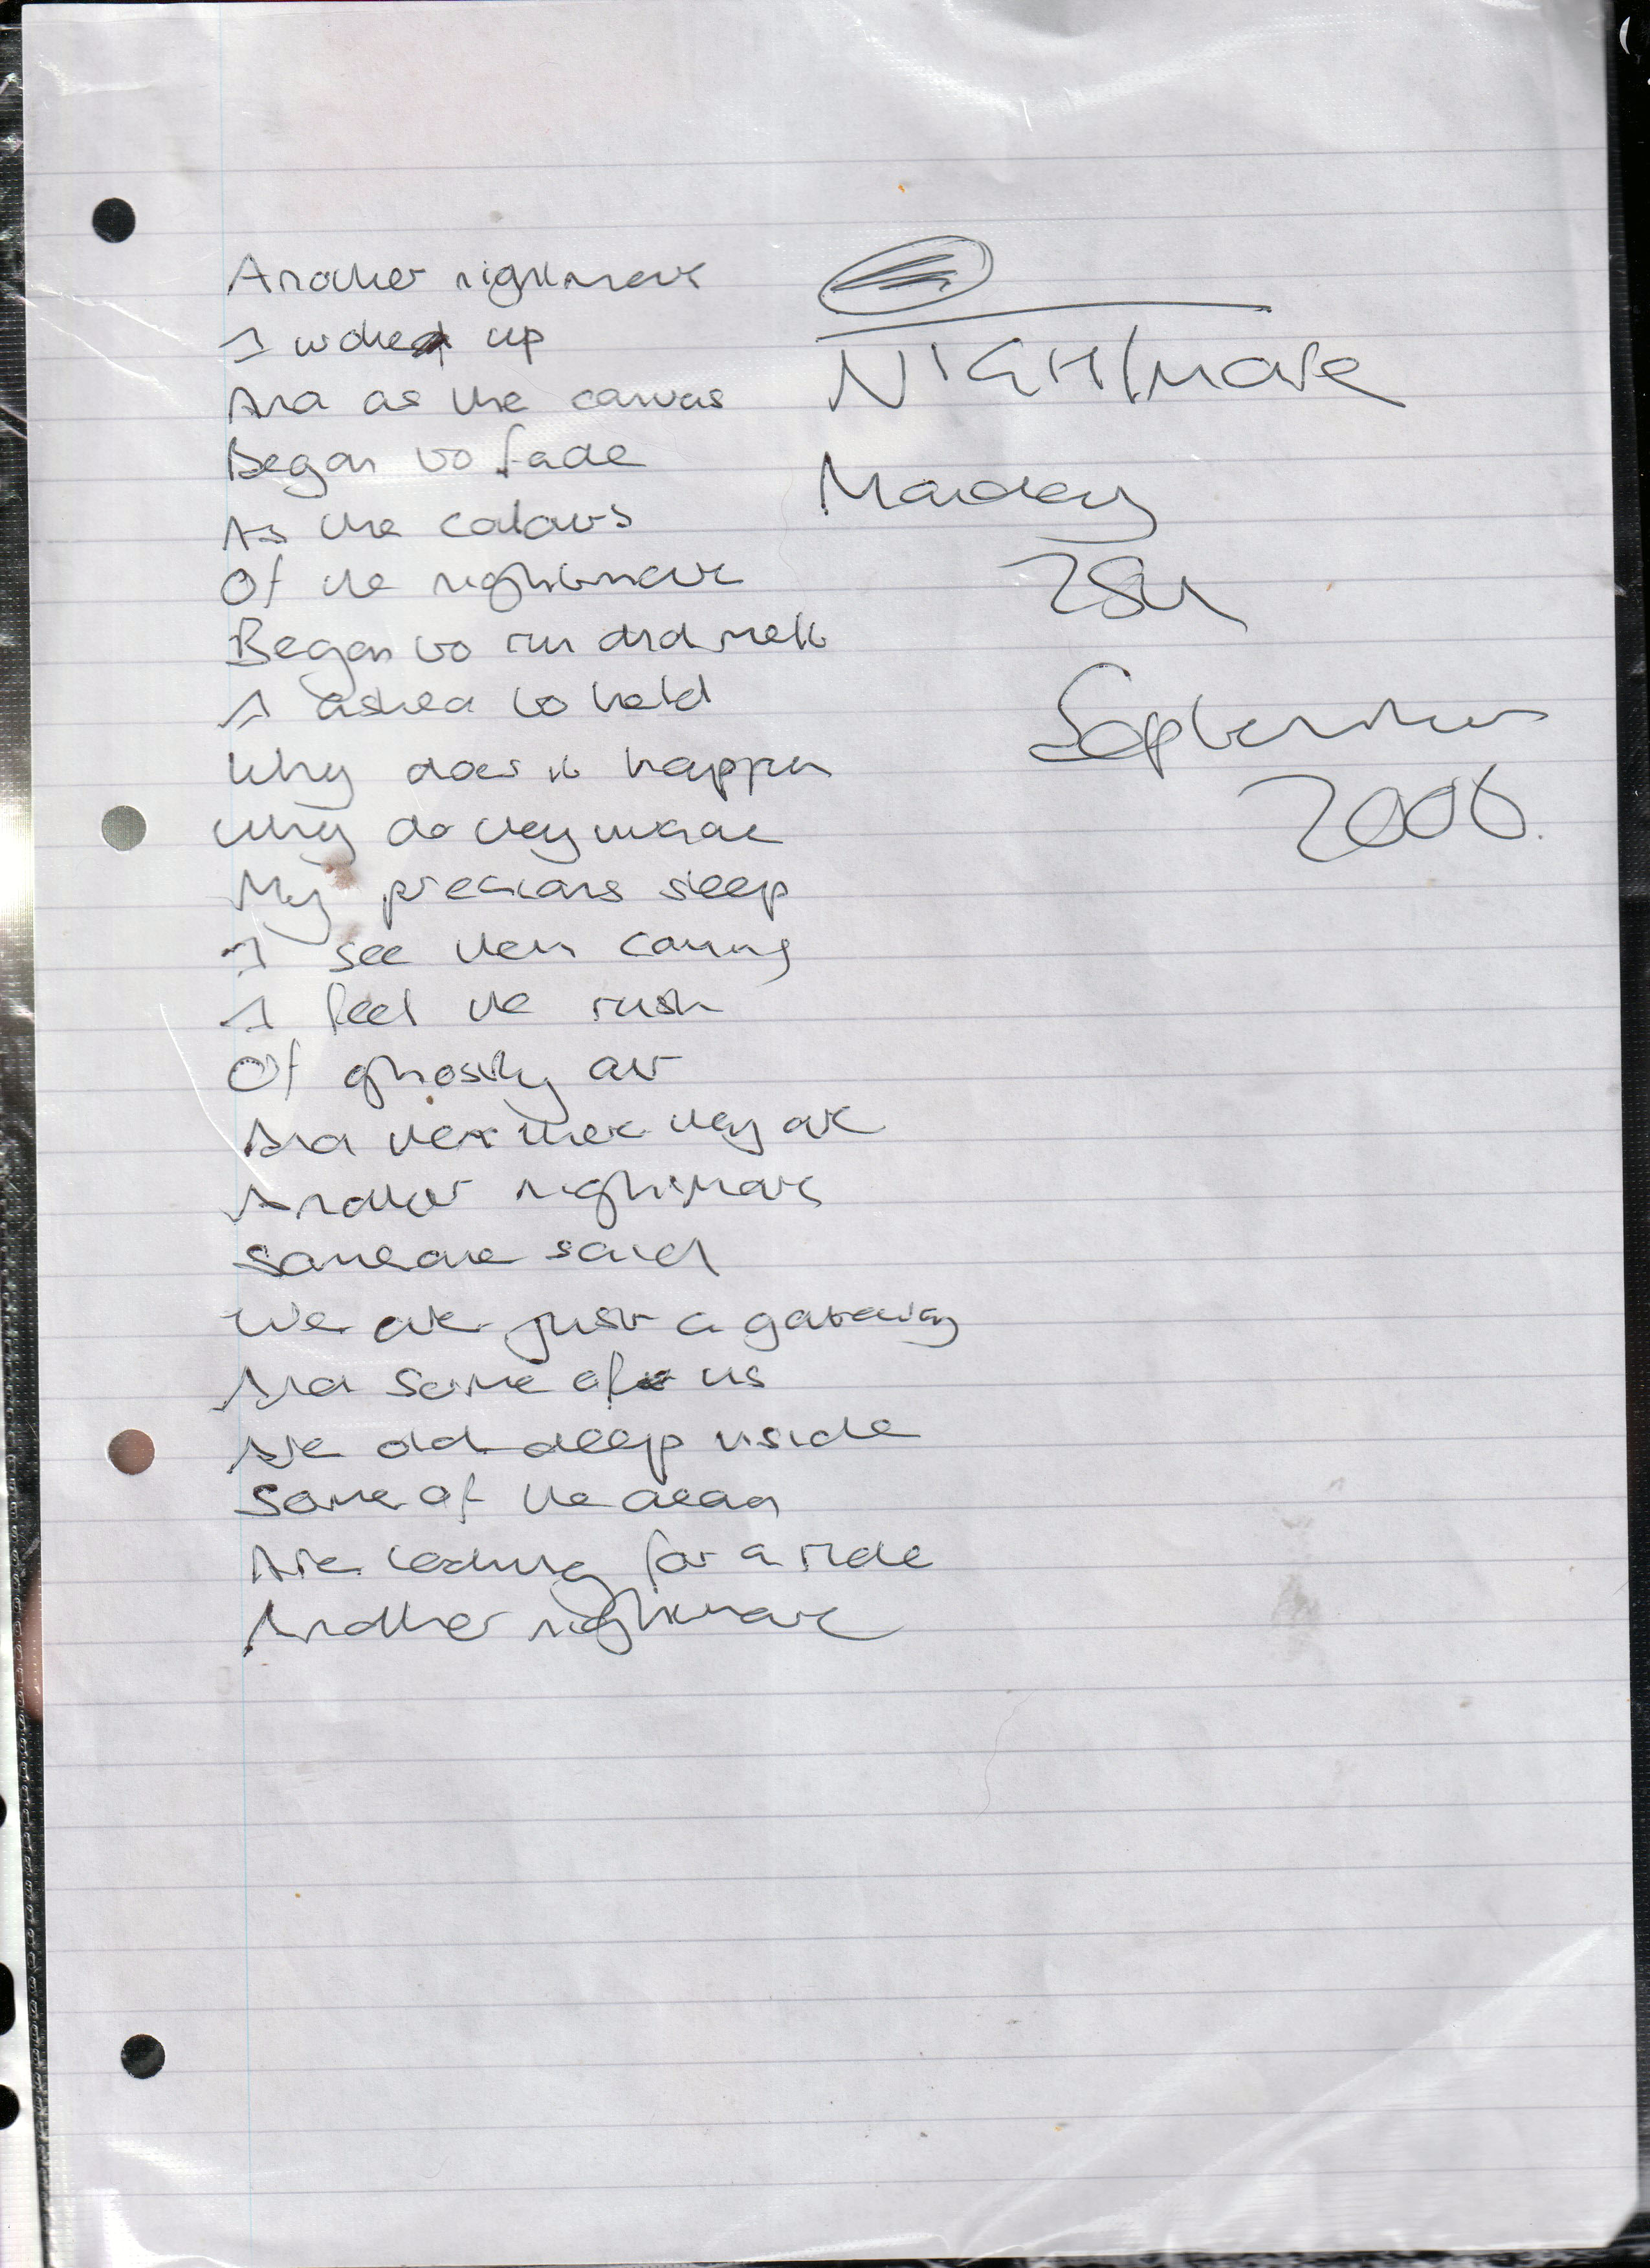 Another nightmare
I woke up
And as the canvas
Began to fade
As the colours
Of the nightmare
Began to run and melt
I asked to hold
Why does it happen
Why do they invade
My precious sleep
I see them coming
I feel the rush
Of ghostly air
And there they are
Another nightmare
Someone said
We are just a gateway
And some of us
Are old deep inside
Some of the dead
Are looking for a ride
Another nightmare
NIGHTMARE
Monday
25th
September
2006.